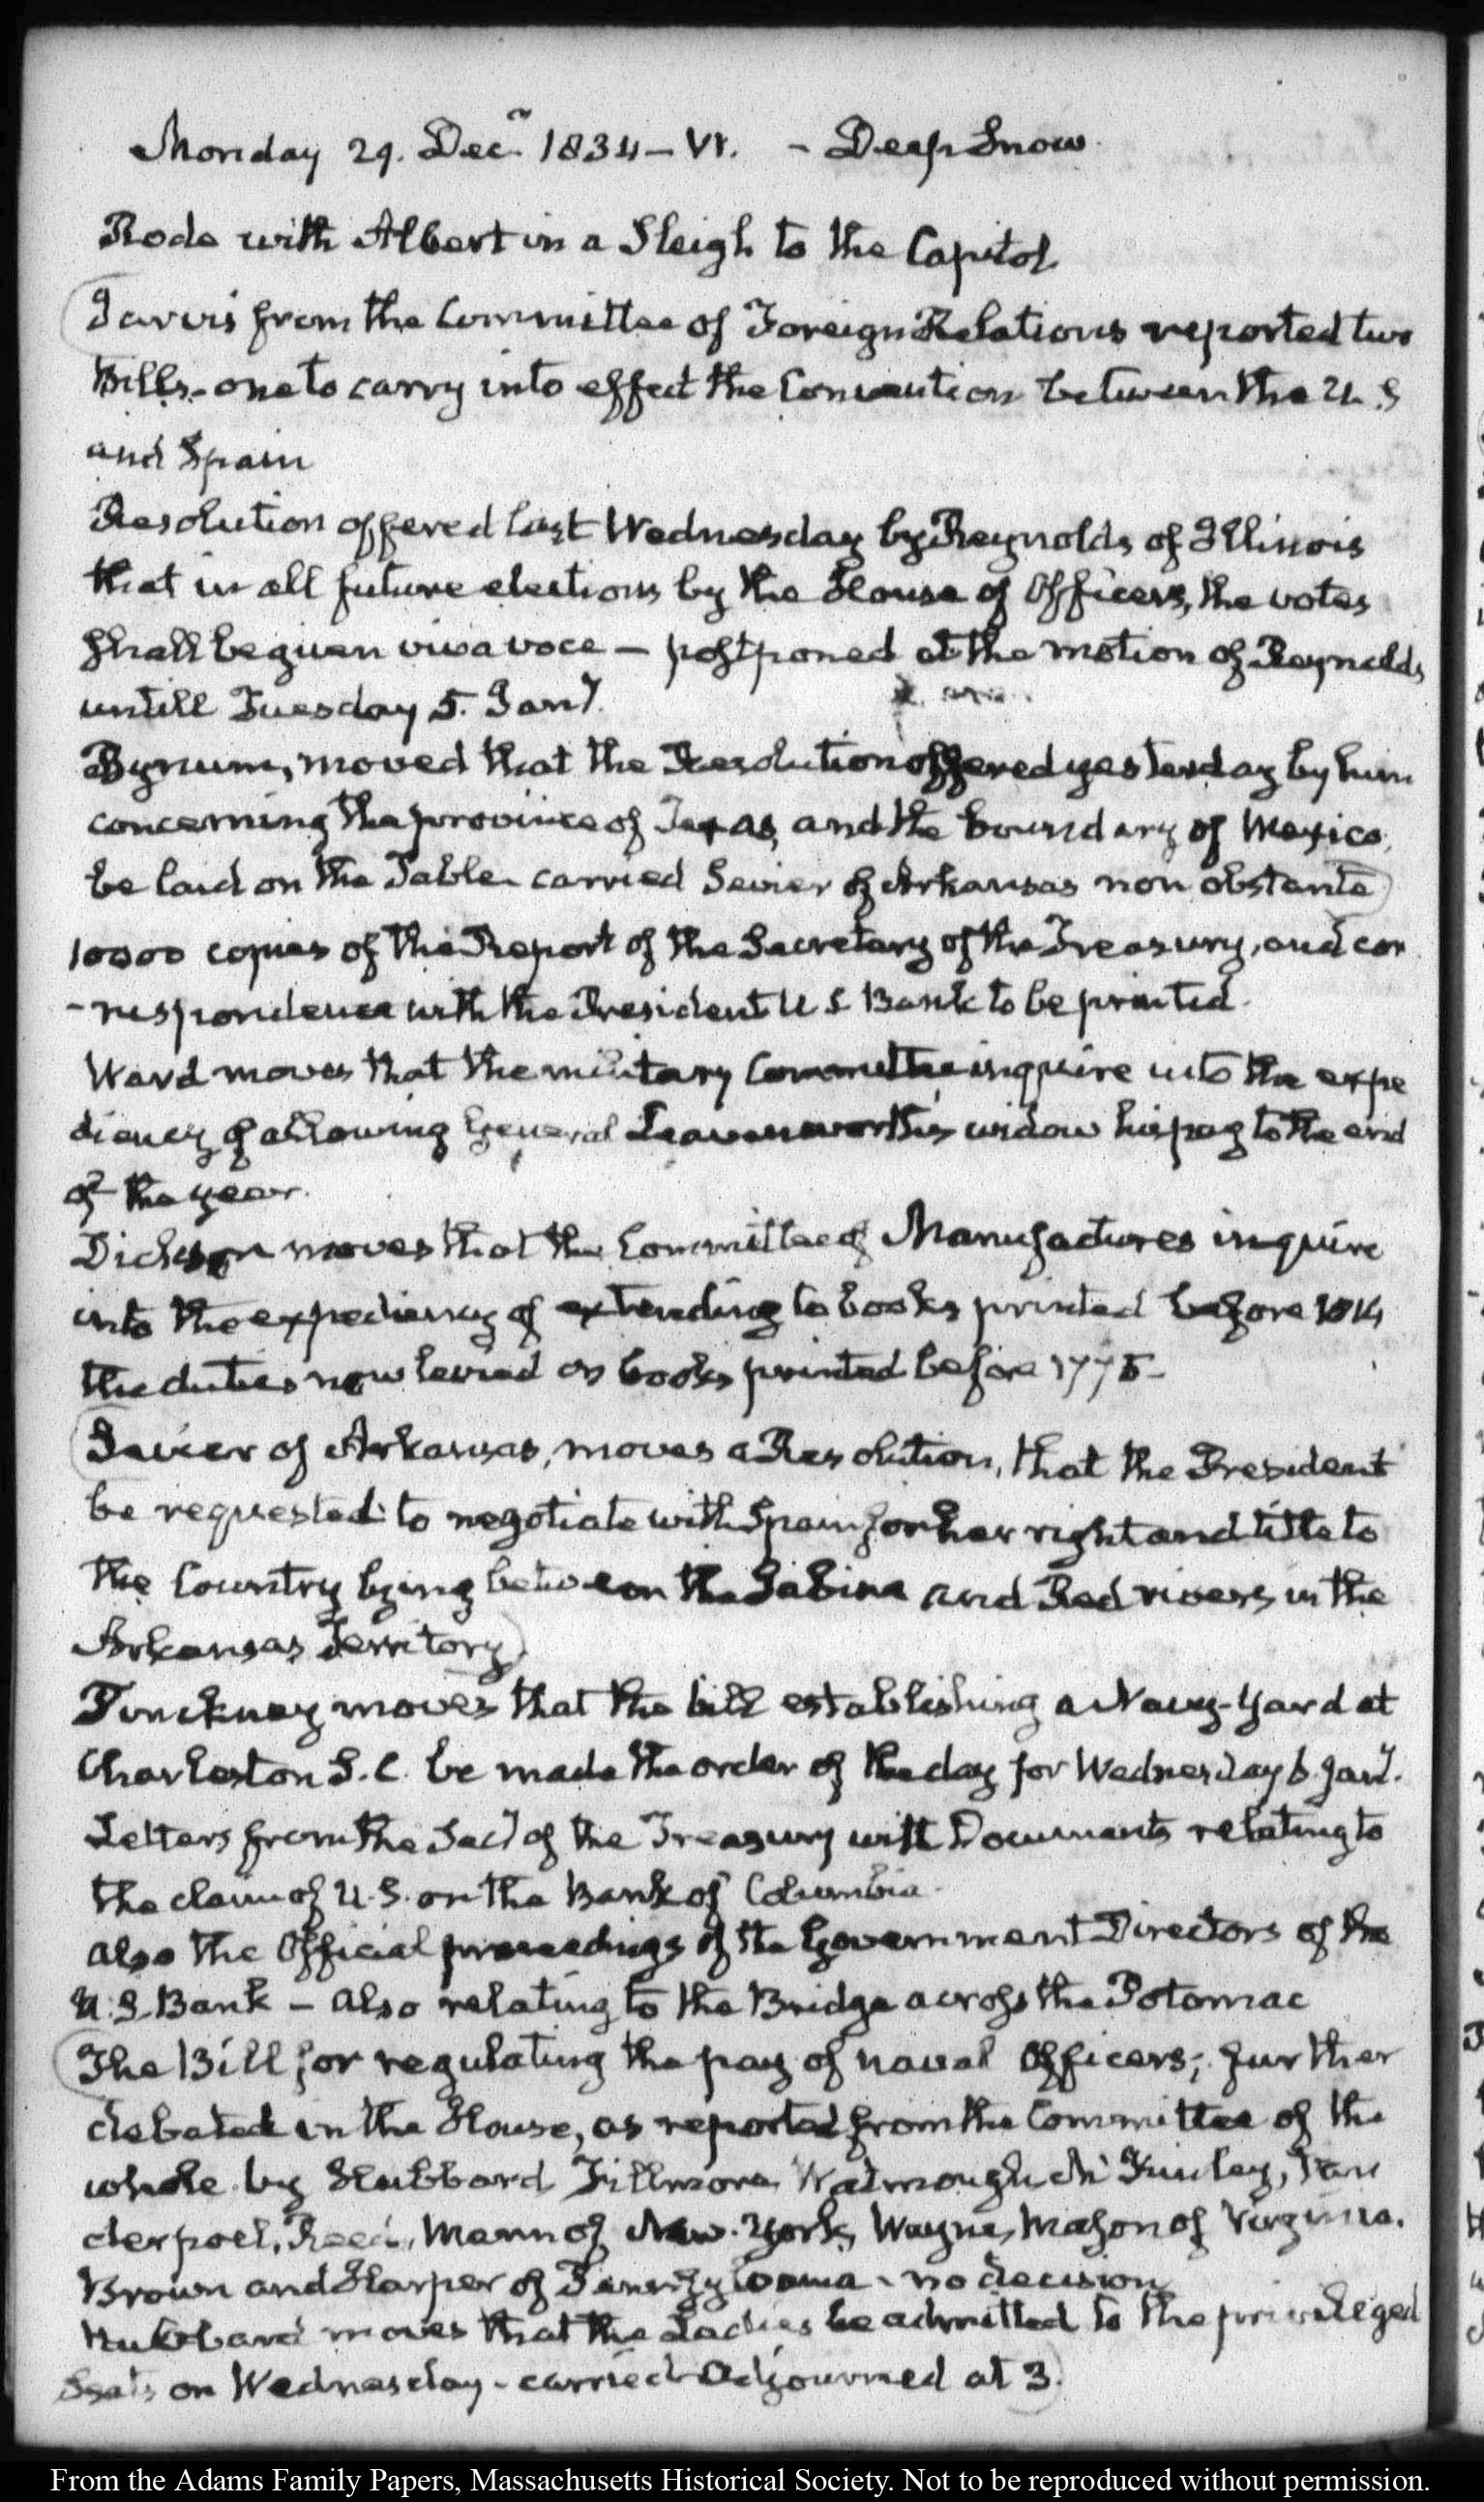 Monday 29. Decr 1834 – VI. – Deep Snow.
Rode with Albert in a Sleigh to the Capitol
Jarvis from the Committee of Foreign Relations reported two
Bills – one to carry into effect the Convention between the U.S
and Spain
Resolution offered last Wednesday by Reynolds of Illinois
that in all future elections by the House of Officers, the votes
shall be given viva voce – postponed at the motion of Reynolds
untill Tuesday 5. Jany.
Bynum, moved that the Resolution offered yesterday by him
concerning the province of Texas, and the boundary of Mexico,
be laid on the Table. carried Sevier of Arkansas non obstante
10000 copies of the Report of the Secretary of the Treasury, and cor
-respondence with the President U S Bank to be printed.
Ward moves that the military Committee inquire into the expe
diency of allowing General Leavenworth's widow his pay to the end
of the year.
Dickson moves that the Committee of Manufactures inquire
into the expediency of extending to books printed before 1814
the duties now levied on books printed before 1775–
Sevier of Arkansas, moves a Resolution, that the President
be requested to negotiate with Spain for her right and title to
the Country lying between the Sabine and Red rivers in the
Arkansas Territory.
Pinckney moves that the bill establishing a Navy-Yard at
Charleston S.C. be made the order of the day for Wednesday 6. Jany.
Letters from the Secy of the Treasury with Documents relating to
the claim of U.S. on the Bank of Columbia.
also the Official proceedings of the Government Directors of the
U.S. Bank – Also relating to the Bridge across the Potomac
The Bill for regulating the pay of naval Officers, further
debated in the House, as reported from the Committee of the
whole by Hubbard Fillmore Watmough McKinley, Van
derpoel, Reed, Mann of New-York, Wayne, Mason of Virginia.
Brown and Harper of Pennsylvania – no decision
Hubbard moves that the Ladies be admitted to the privileged
Seats on Wednesday – carried Adjourned at 3.
From the Adams Family Papers, Massachusetts Historical Society. Not to be reproduced without permission.